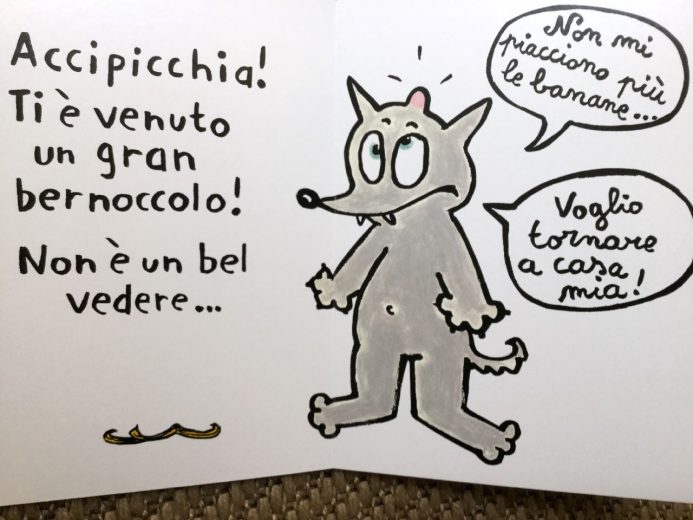 Accipicchia!
Ti è venuto
un gran
bernoccolo!
Non è un bel
vedere...
Non mi
piacciono più
le banane...
Voglio
tornare
a casa
mia!